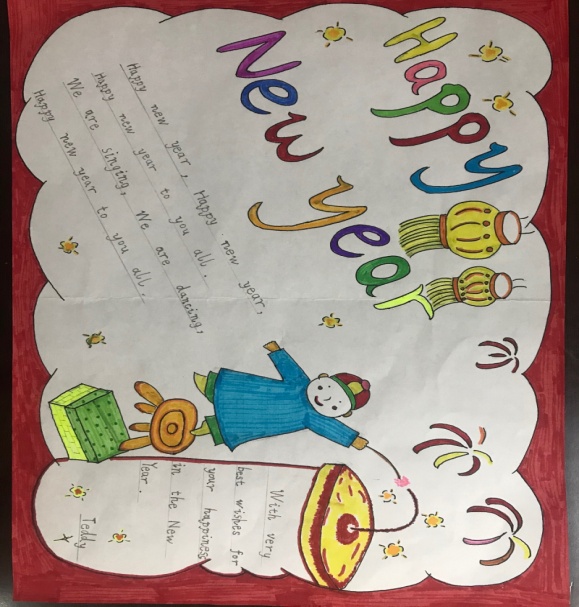 Happy
New Year
Happy new year, Happy new year,
Happy new year to you all.
We are singing, We are dancing,
Happy new year to you all.
With very
best wishes for
your happiness
in the New
Year.
Teddy